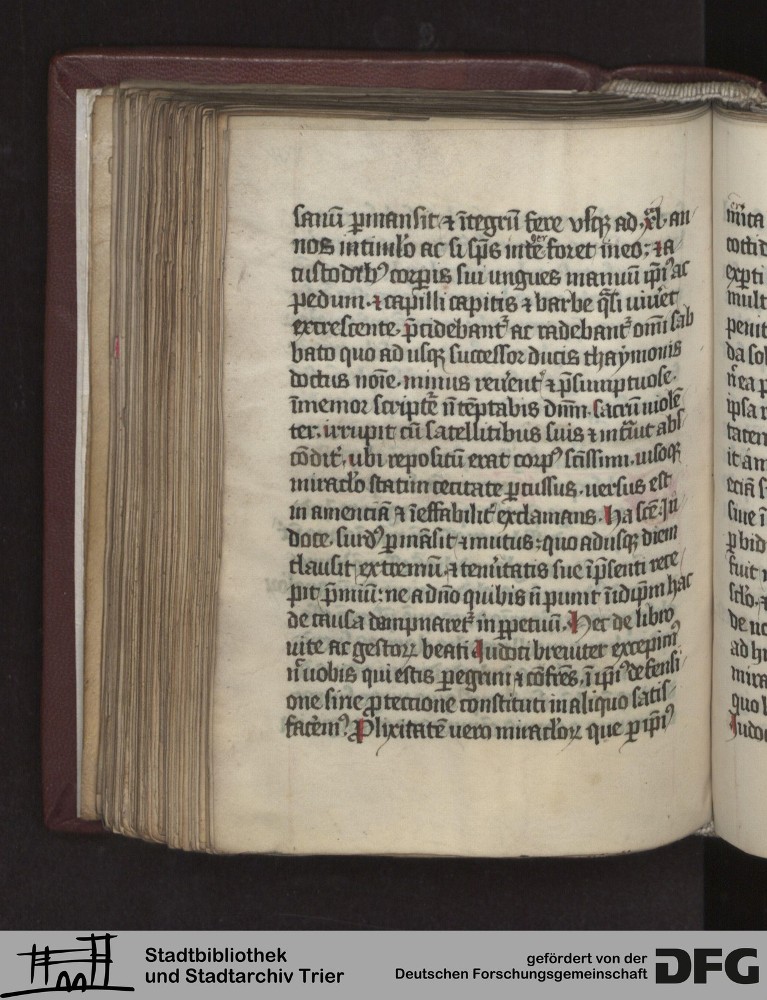 sanū ꝑmansit ⁊ ītegrū fere vsqꝫ ad xl an
nos in timl̄o ac si sp̄s inte foret in eo: ⁊ a
custodibꝰ corꝑis sui ungues manuū ip̄iꝰ ac
pedum ⁊ capilli capitis ⁊ barbe q̄si uiuēt
excrescente p̄cidebant᷑ ac radebant᷑ om̄i sab
bato quo ad usqꝫ successor ducis thaymonis
doctus noīe minus reuerent᷑ ⁊ p̄sumptuose
īmemor scriptē n̄ tēptabis dn̄m sacrū uiolē
ter irrupit cū satellitibus suis ⁊ int᷑iut abs
cōdit᷑ ubi repositū erat corpꝰ sc̄issimi uisoqꝫ
miracl̄o statim cecitate ꝑcussus uersus est
in amenciā ⁊ īeffabilit᷑ exclamans Ha sc̄e Iu
doce surdꝰ ꝑmāsit ⁊ mutus: quo adusqꝫ diem
clausit extremū ⁊ temitatis sue īp̄senti rece
pit p̄miū: ne a dn̄o quibis n̄ punit īidip̄m hac
de causa dampnaret᷑ in ꝑpetuū Hec de libro
uite ac gestoꝝ beati Iudoci breuiter excepim᷑
n̄ uobis qui estis ꝑegrini ⁊ cōfr̄es ī ip̄iꝰ defensi
one siue ꝓtectione constituti in aliquo satis
facēmꝰ Plixitatē uero miracl̄oꝝ que ꝑ ip̄iꝰ
Stadtbibliothek
und Stadtarchiv Trier
gefördert von der
Deutschen Forschungsgemeinschaft
DFG